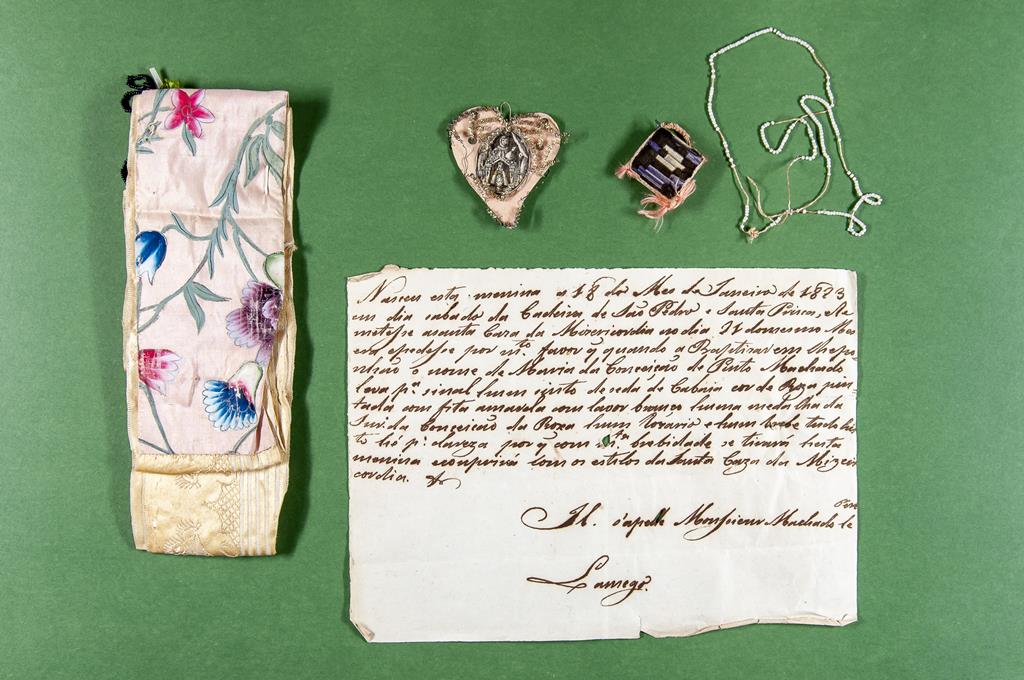 Nasceu esta menina a 18 do Mes de Janeiro de 1823
em dia sabado da Cadeira de São Pedro e Santa Prisca,
metese a santa Caza da Misericordia no dia 21 do mesmo Mes
epedese por m.to favor q quando a Baptizarem lhe po
nhão o nome de Maria da Conceição de Pinto Machado
leva p.a sinal hum sinto de seda de Cabaia cor de Roza pin
tada com fita amarela com lavor branco huma medalha da
Snr.a da Conceição da Roxa hum Rozario e hum tudo
to hé p.a clareza por q com m.ta brebidade se tirará hesta
menina comprirá com os estilos da Santa Caza da Mizeri
cordia.
Il. Monsieur Machado de
Lamego.